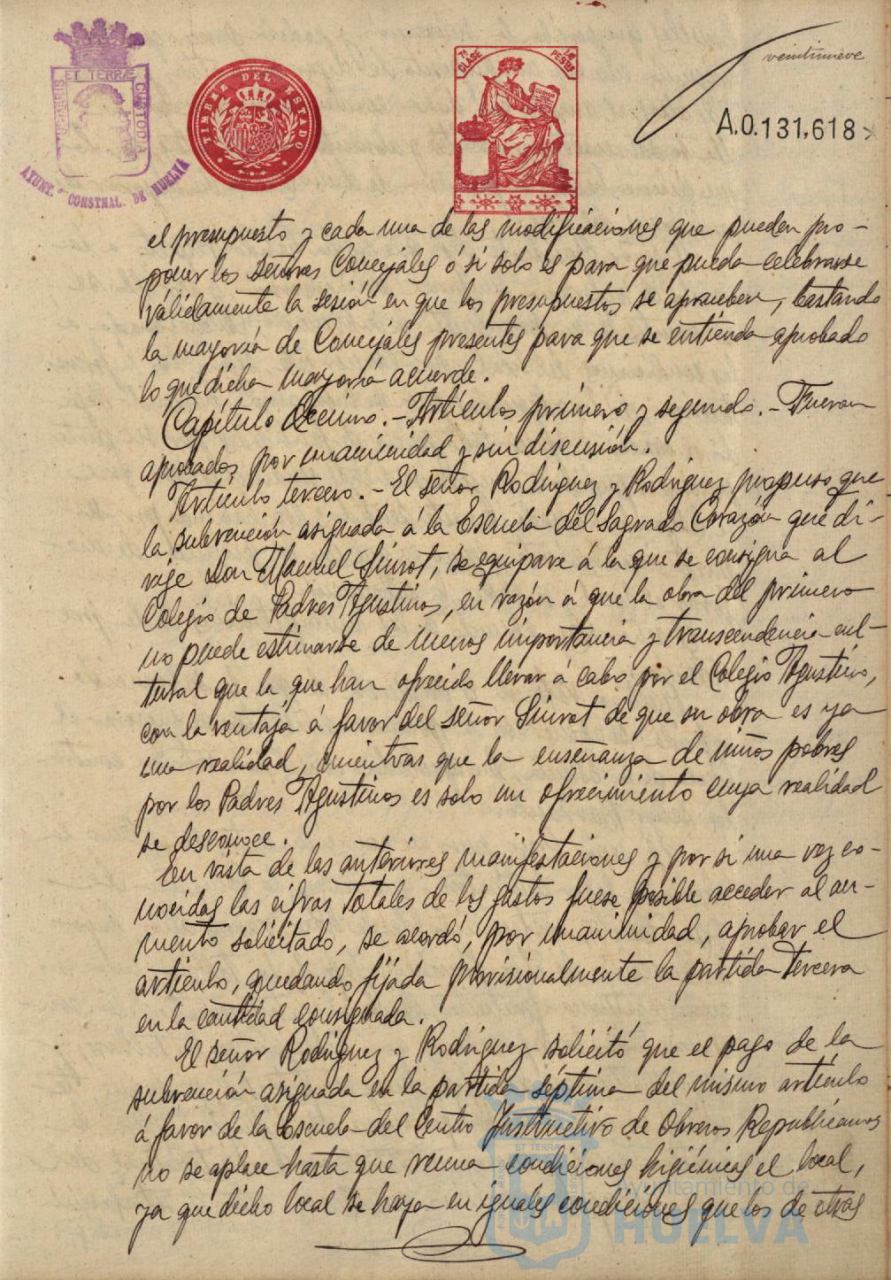 veintinueve
A.0.131,618
PORTUS MARIS ET TERRÆ CUSTODIA
AYUNT.º CONSTNAL. DE HUELVA
TIMBRE DEL ESTADO
7ª CLASE
PESETA
el presupuesto y cada una de las modificaciones que pueden pro-
poner los señores Concejales ó si solo es para que pueda celebrarse
válidamente la sesión en que los presupuestos se aprueben, bastando
la mayoría de Concejales presentes para que se entienda aprobado
lo que dicha mayoría acuerde.
Capítulo Décimo.- Artículos primero y segundo.- Fueron
aprobados por unanimidad y sin discusión.
Artículo tercero.- El señor Rodríguez y Rodríguez propuso que
la subvención asignada á la Escuela del Sagrado Corazón que di-
rige Don Manuel Siurot, se equipare á la que se consigna al
Colegio de Padres Agustinos, en razón á que la obra del primero
no puede estimarse de menos importancia y transcendencia cul-
tural que la que han ofrecido llevar á cabo por el Colegio Agustino,
con la ventaja á favor del señor Siurot de que su obra es ya
una realidad, mientras que la enseñanza de niños pobres
por los Padres Agustinos es solo un ofrecimiento cuya realidad
se desconoce.
En vista de las anteriores manifestaciones y por si una vez co-
nocidas las cifras totales de los gastos fuese posible acceder al au-
mento solicitado, se acordó, por unanimidad, aprobar el
artículo, quedando fijada provisionalmente la partida tercera
en la cantidad consignada.
El señor Rodríguez y Rodríguez solicitó que el pago de la
subvención asignada en la partida séptima del mismo artículo
á favor de la Escuela del Centro Instructivo de Obreros Republicanos
no se aplace hasta que reuna condiciones higiénicas el local,
ya que dicho local se haya en iguales condiciones que los de otras
Ayuntamiento de
HUELVA